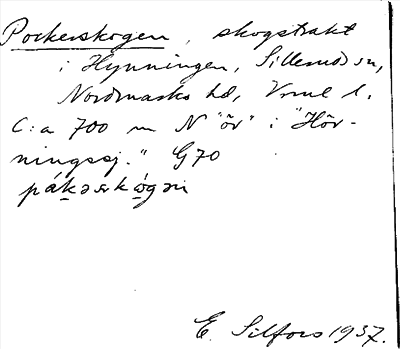 Pockerskogen, skogstrakt
i Hynningen, Sillerud sn,
Nordmarks hd, Vrml l.
C:a 700 m N "ör" i "Hör-
ningssj." G70
påkərskógən
E. Silfors 1937.